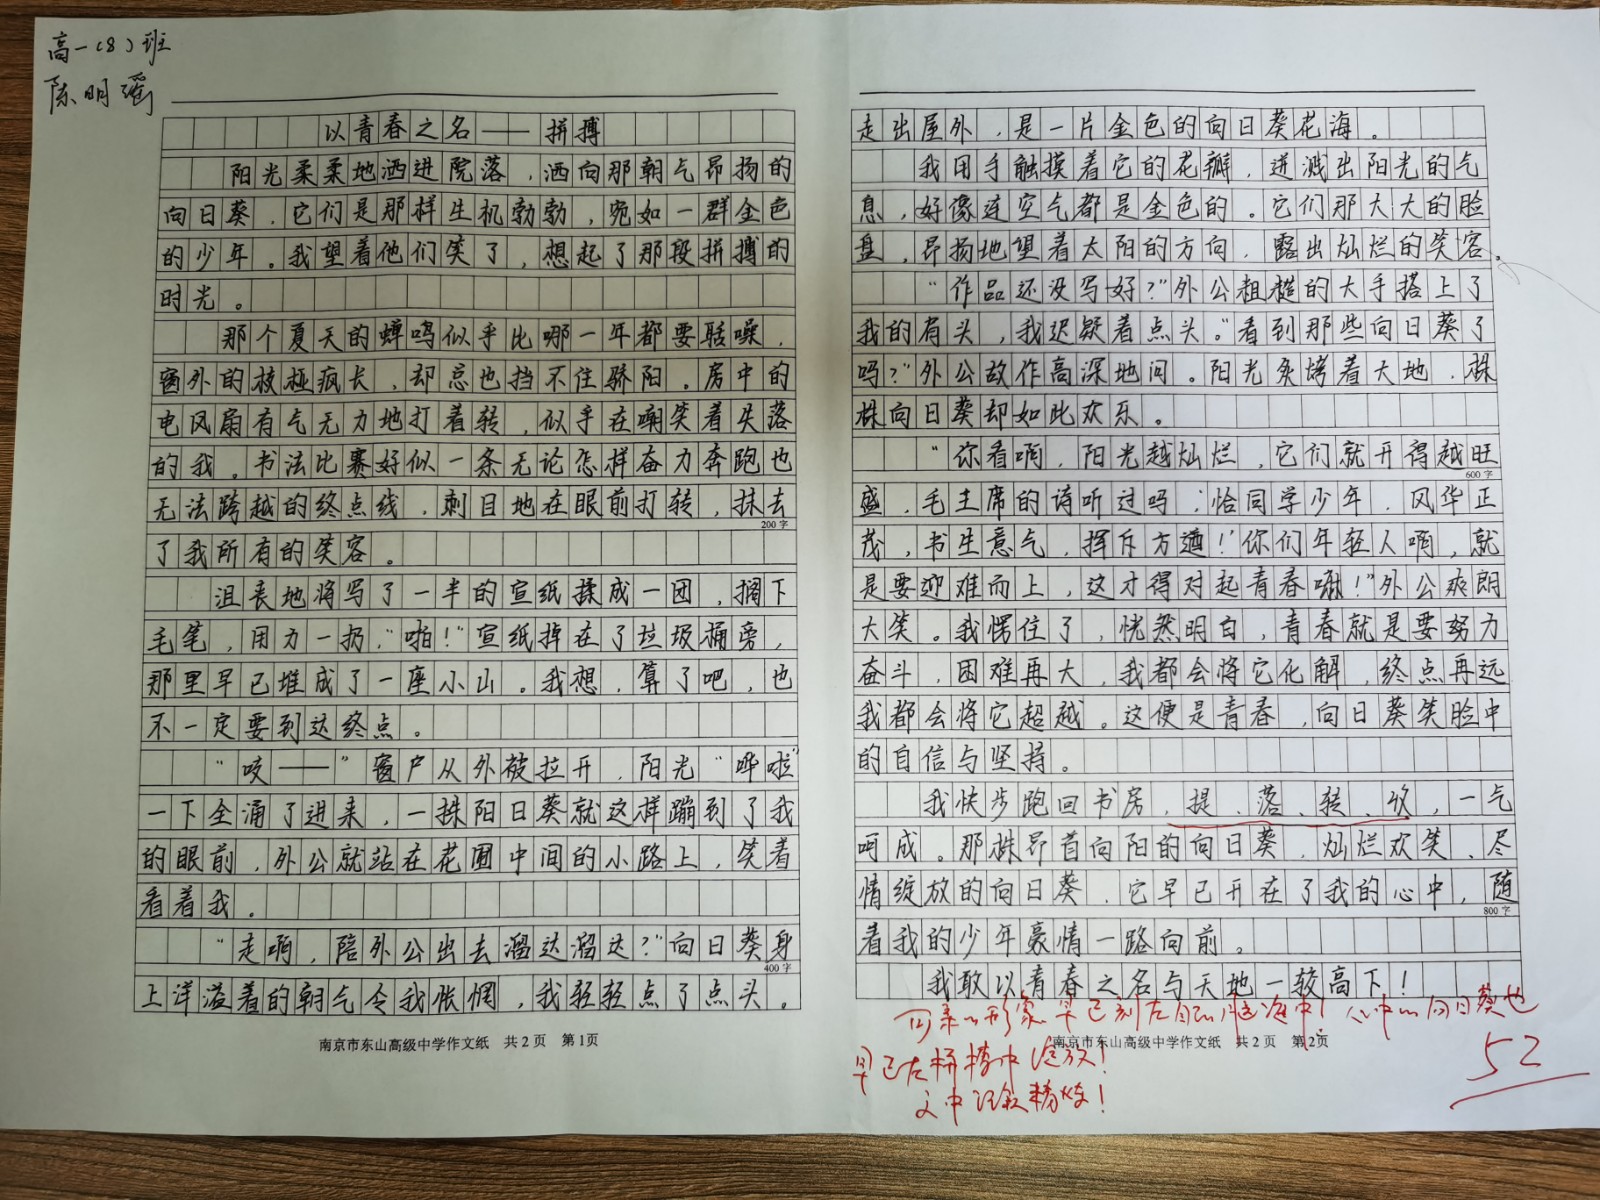 高一(8)班
陈明瑶
以青春之名——拼搏
阳光柔柔地洒进院落，洒向那朝气昂扬的
向日葵，它们是那样生机勃勃，宛如一群金色
的少年。我望着他们笑了，想起了那段拼搏的
时光。
那个夏天的蝉鸣似乎比哪一年都要聒噪，
窗外的枝桠疯长，却总也挡不住骄阳。房中的
电风扇有气无力地打着转，似乎在嘲笑着失落
的我。书法比赛好似一条无论怎样奋力奔跑也
无法跨越的终点线，刺目地在眼前打转，抹去
200字
了我所有的笑容。
沮丧地将写了一半的宣纸揉成一团，搁下
毛笔，用力一扔，“啪！”宣纸掉在了垃圾桶旁，
那里早已堆成了一座小山。我想，算了吧，也
不一定要到达终点。
“咬——”窗户从外被拉开，阳光“哗啦”
一下全涌了进来，一株阳日葵就这样蹦到了我
的眼前，外公就站在花圃中间的小路上，笑着
看着我。
“走啊，陪外公出去溜达溜达？”向日葵身
400字
上洋溢着的朝气令我怅惘，我轻轻点了点头。
南京市东山高级中学作文纸 共2页 第1页
走出屋外，是一片金色的向日葵花海。
我用手触摸着它的花瓣，迸溅出阳光的气
息，好像连空气都是金色的。它们那大大的脸
盘，昂扬地望着太阳的方向，露出灿烂的笑容。
“作品还没写好？”外公粗糙的大手搭上了
我的肩头，我迟疑着点头。“看到那些向日葵了
吗？”外公故作高深地问。阳光炙烤着大地，株
株向日葵却如此欢乐。
“你看啊，阳光越灿烂，它们就开得越旺
600字
盛，毛主席的诗听过吗：恰同学少年，风华正
茂，书生意气，挥斥方遒！’你们年轻人啊，就
是要迎难而上，这才得对起青春嘛！”外公爽朗
大笑。我愣住了，恍然明白，青春就是要努力
奋斗，困难再大，我都会将它化解，终点再远
我都会将它超越。这便是青春，向日葵笑脸中
的自信与坚持。
我快步跑回书房，提、落、转、收，一气
呵成。那株昂首向阳的向日葵，灿烂欢笑、尽
情绽放的向日葵，它早已开在了我的心中，随
800字
着我的少年豪情一路向前。
我敢以青春之名与天地一较高下！
南京市东山高级中学作文纸 共2页 第2页
早已在拼搏中绽放！
52